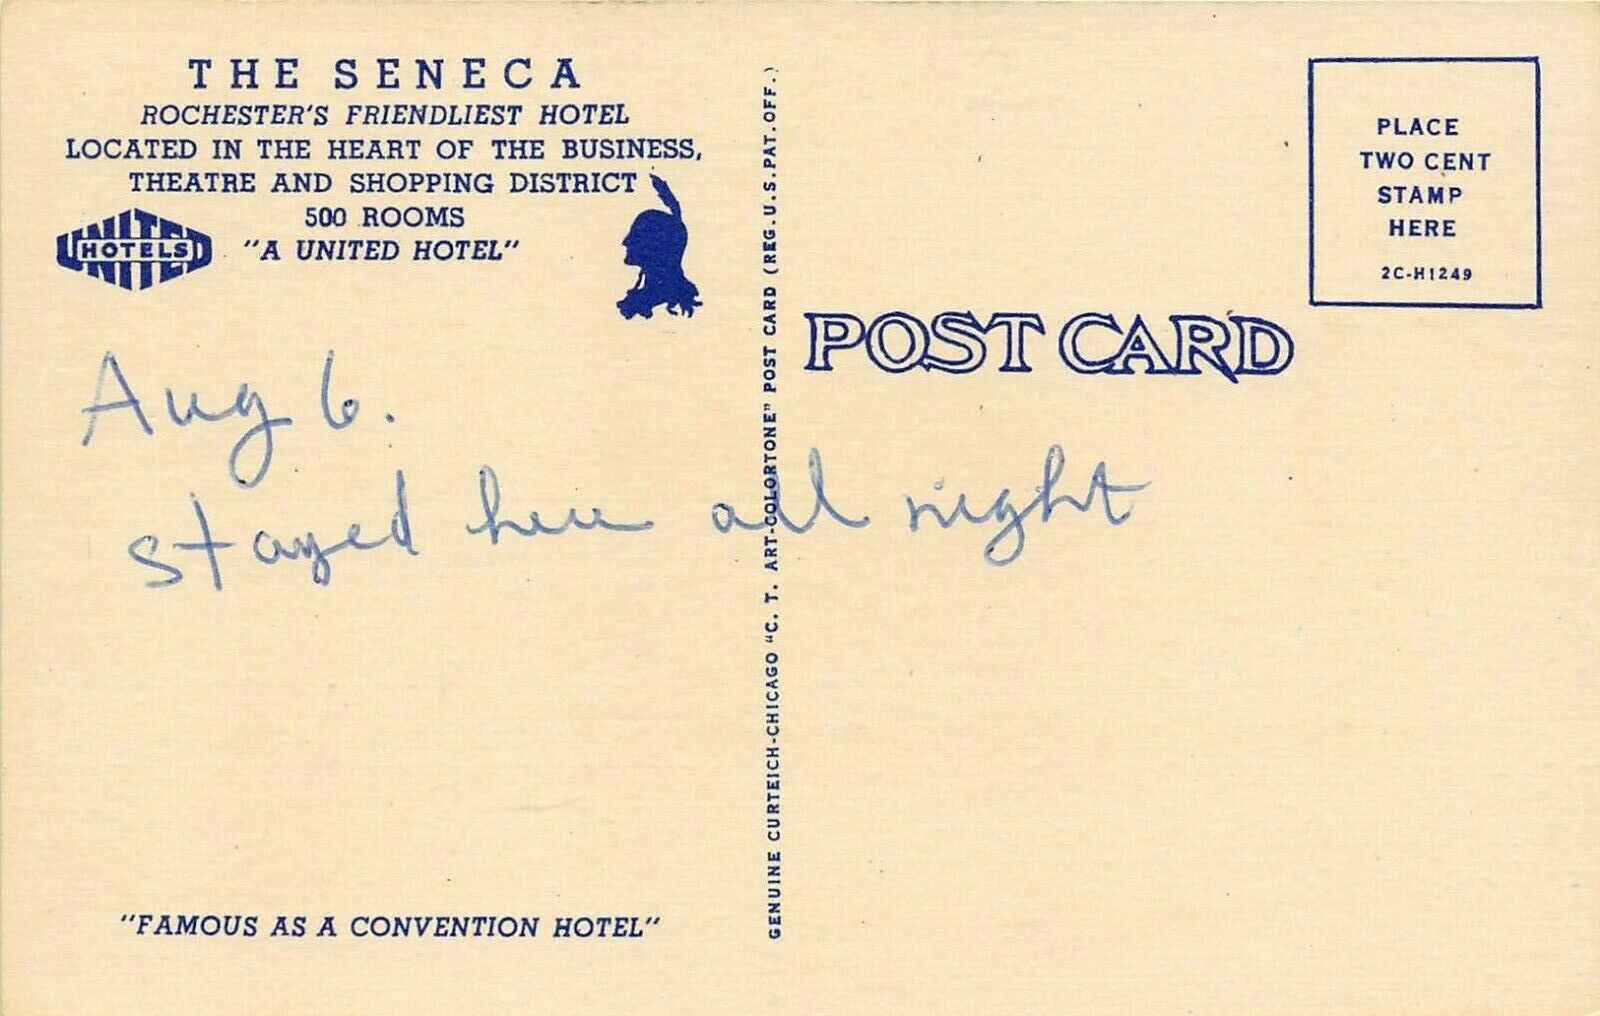 THE SENECA
ROCHESTER'S FRIENDLIEST HOTEL
LOCATED IN THE HEART OF THE BUSINESS,
THEATRE AND SHOPPING DISTRICT
500 ROOMS
"A UNITED HOTEL"
UNITED
HOTELS
Aug 6.
stayed here all night
"FAMOUS AS A CONVENTION HOTEL"
GENUINE CURTEICH-CHICAGO "C. T. ART-COLORTONE" POST CARD (REG. U.S. PAT. OFF.)
POST CARD
PLACE
TWO CENT
STAMP
HERE
2C-H1249